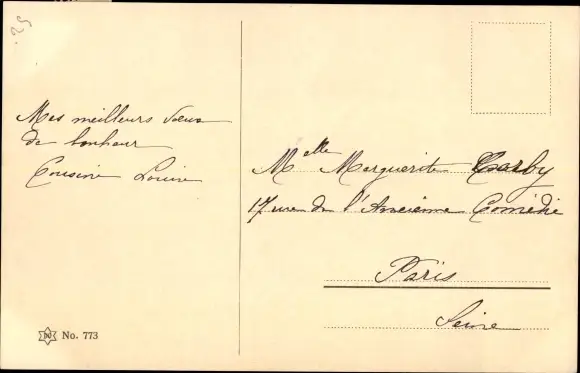 .25
Mes meilleurs vœux
de bonheur
Cousine Louise
Melle Marguerite
17 rue de l'Ancienne Comédie
Paris
Seine
No. 773